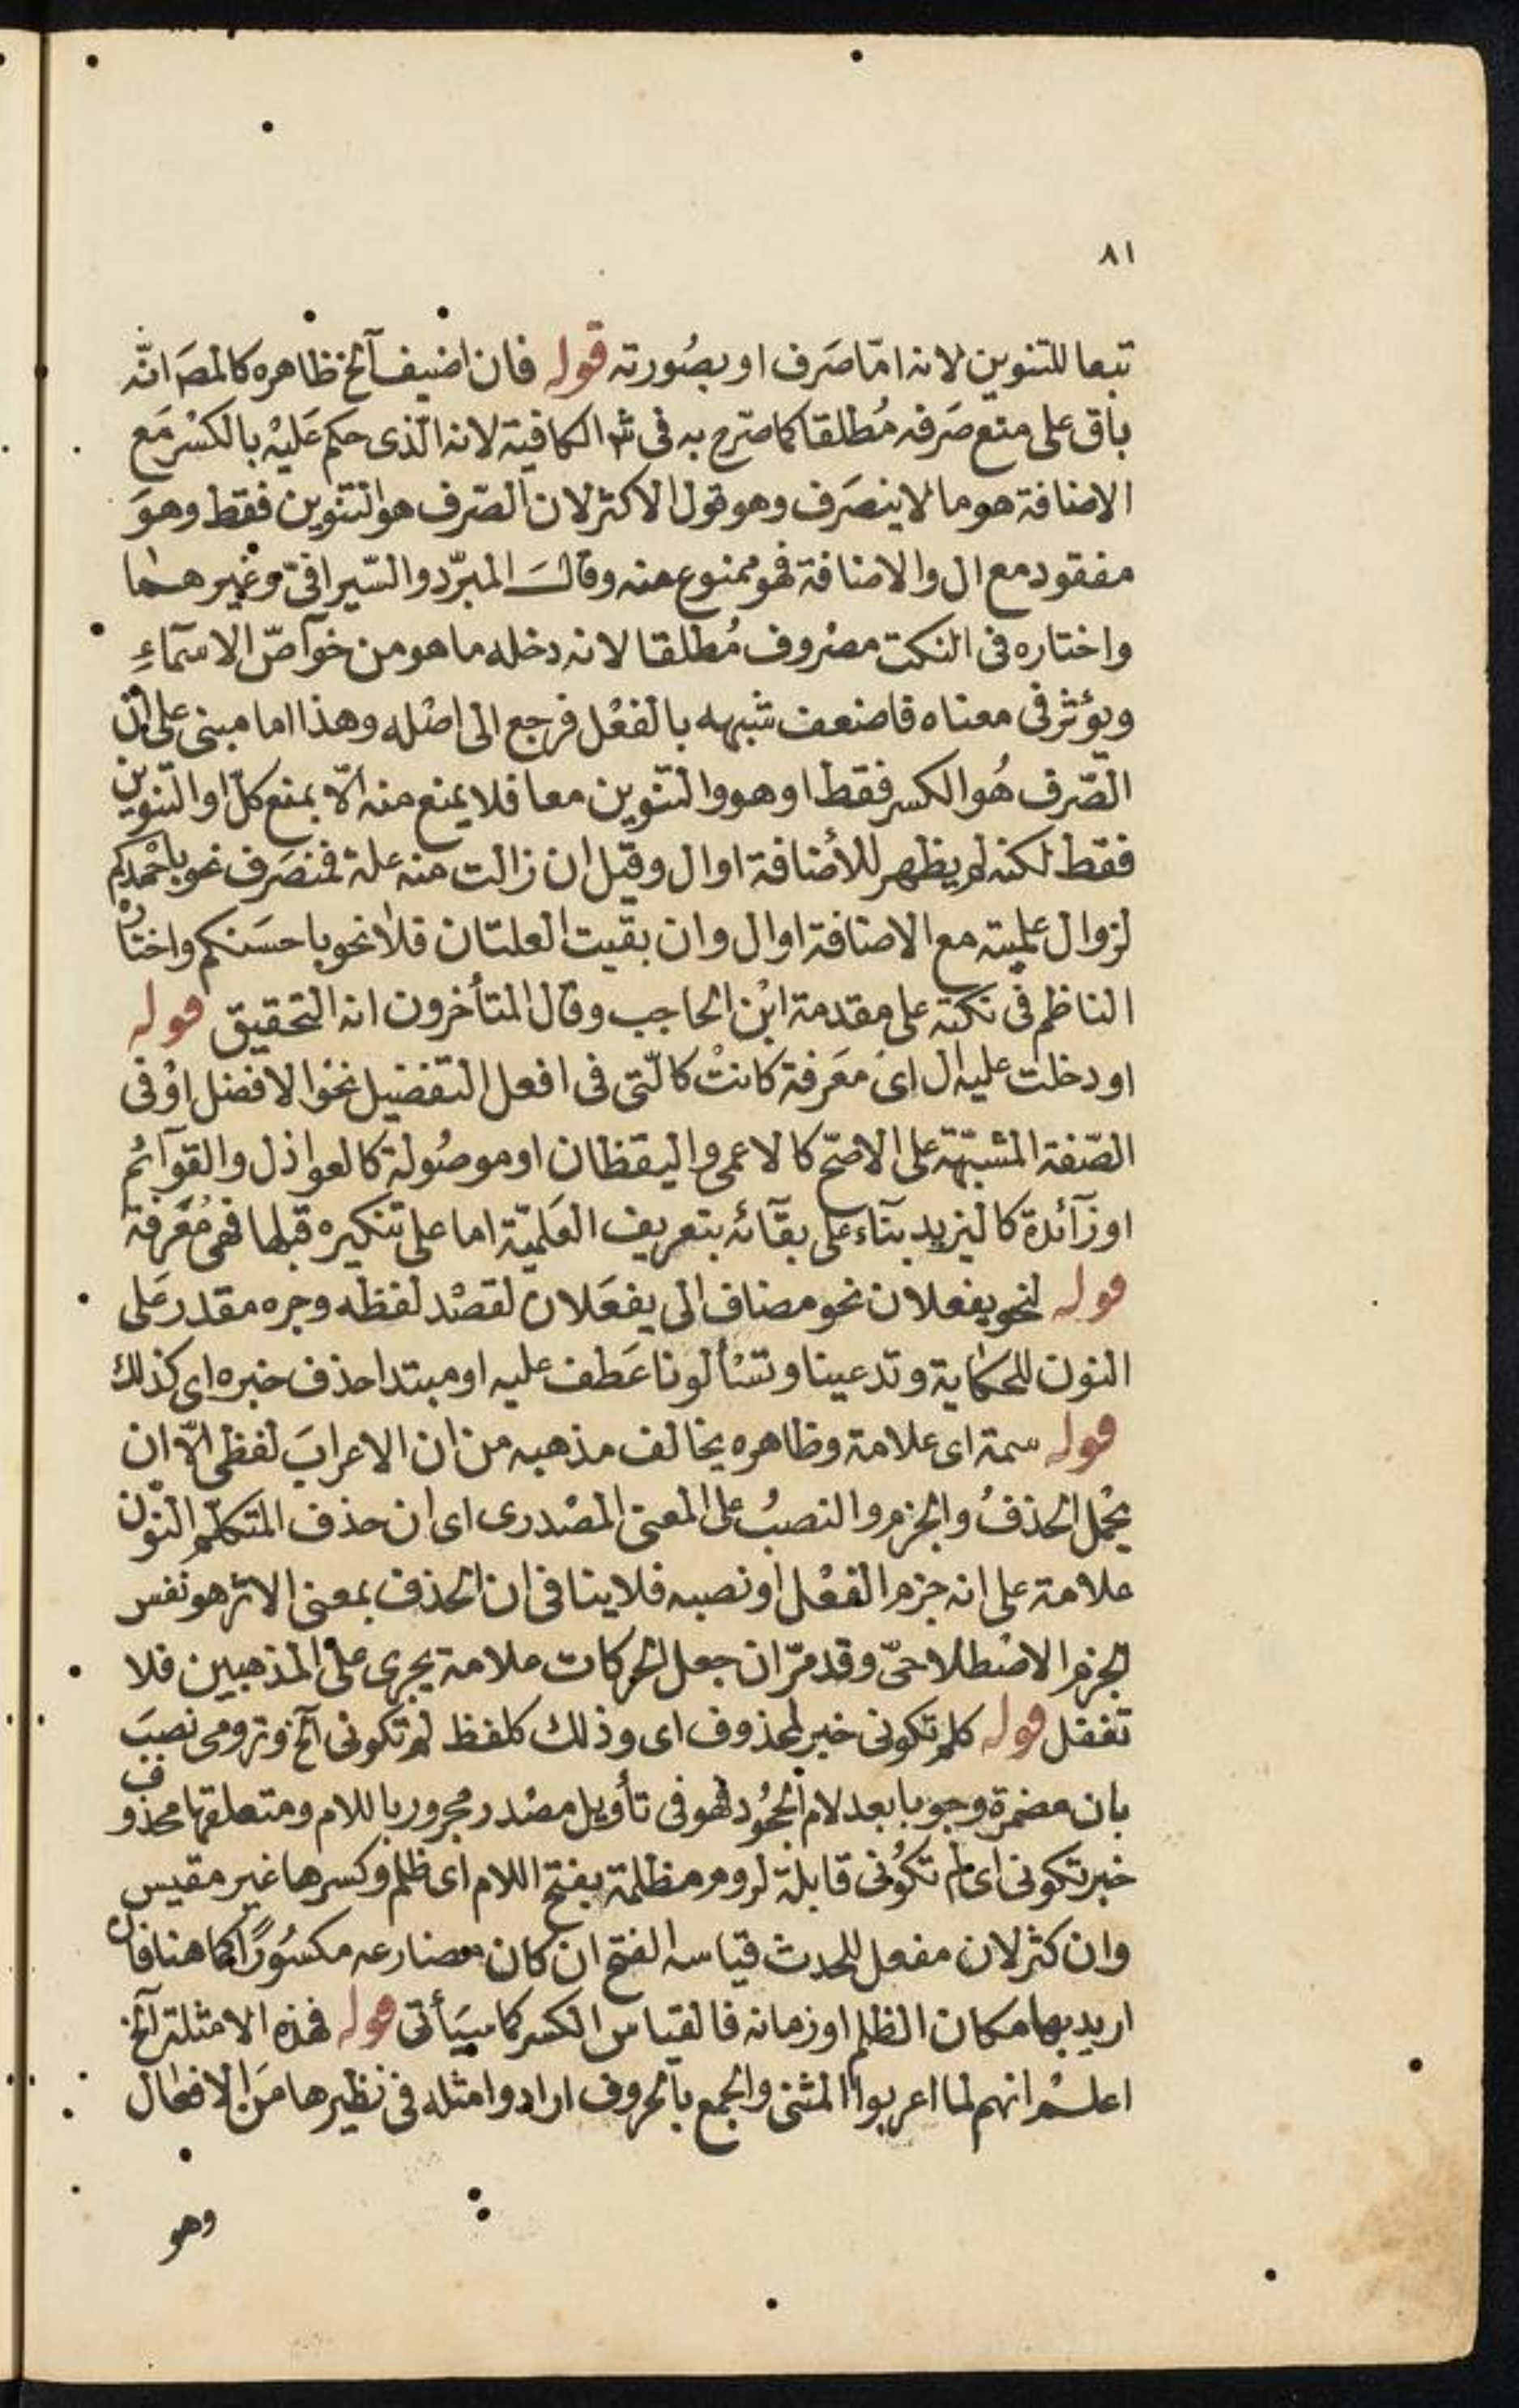 ٨١
تبعا للتنوين لانه امّا صَرف او بصُورته قوله فان اضيف آلخ ظاهره كالمصَ انّه
باق على منع صَرفه مُطلقا كما صرّح به فى شر الكافية لانه الّذى حكم عَليْه بالكسْر مَع
الاضافة هو ما لا ينصَرف وهو قول الاكثر لان الصّرف هو التنوين فقط وهوَ
مفقود مع ال والاضافة فهو ممنوع منه وقالَ المبرّد والسّيرافىّ وغيرهما
واختاره فى النكت مصْروف مُطلقا لانه دخله ما هو من خوآصّ الاسمآءِ
ويؤثر فى معناه فاضعف شبهه بالفعْل فرجع الى اصْله وهذا اما مبنى على انّ
الصّرف هُو الكسر فقط او هو والتنوين معا فلا يمنع منه الّا بمنع كلّ او التنوين
فقط لكنه لم يظهر للأضافة او ال وقيل ان زالت منه علة فمنصَرف نحو باحْمدكم
لزوال علميته مع الاضافة او ال وان بقيت العلتان فلا نحو باحسَنكم واختاره
الناظم فى نكته على مقدمة ابْن الحاجب وقال المتأخرون انه التحقيق قوله
او دخلت عليه ال اىْ مَعَرفة كانتْ كالّتى فى افعل التفضيل نحْو الافضل اوْ فى
الصّفة المشبّهة على الاصحّ كالاعمى واليقظان او موصُولة كالعواذل والقوآئم
او زآئدة كاليزيد بنآء على بقآئه بتعريف العَلميّة اما على تنكيره قبلها فهى مُعَرفة
قوله لنحو يفعلان نحو مضاف الى يفعَلان لقصْد لفظه وجره مقدر عَلى
النون للحكاية وتدعينا وتسْألونا عَطف عليه او مبتدا حذف خبره اى كذلك
قوله سمة اى علامة وظاهره يخالف مذهبه من ان الاعرابَ لفظى الّا ان
يحْمل الحذفُ والجزم والنصبُ على المعنى المصْدرى اى ان حذف المتكلّم النّون
علامة على انه جزم الفعْل اوْ نصبه فلا ينافى ان الحذف بمعنى الاثر هو نفس
الجزم الاصْطلاحىّ وقد مرّ ان جعل الحركات علامة يجرى على المذهبين فلا
تغفل قوله كلم تكونى خبر لمحذوف اى وذلك كلفظ لم تكونى آلخ وترومى نصبَ
بان مضمرة وجوبا بعد لام الجحُود فهو فى تأويل مصْدر مجرور باللام ومتعلقها محذوف
خبر تكونى اى لم تكُونى قابلة لروم مظلمة بفتح اللام اى ظلم وكسرها غير مقيس
وان كثر لان مفعل للحدث قياسه الفتح ان كان مضارعه مكسُورًا كما هنا فان
اريد بها مكان الظلم او زمانه فالقياس الكسر كما سيَأتى قوله فهذه الامثلة آلخ
اعلمْ انهم لما اعربوا المثنى والجمع بالحروف ارادوا مثله فى نظيرها مَن الافعال
وهو